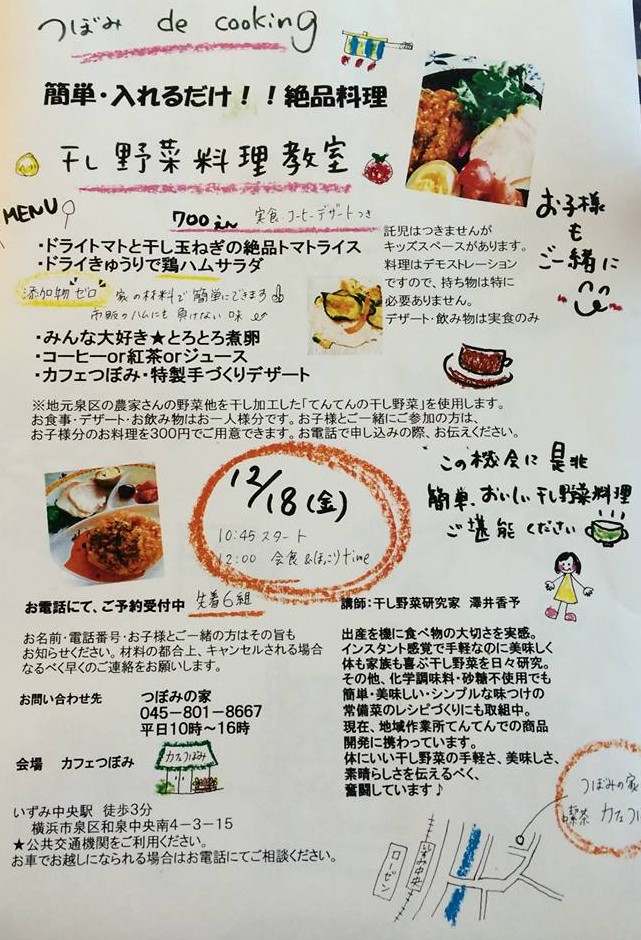 つぼみ de cooking
簡単・入れるだけ！！絶品料理
干し野菜料理教室
MENU
700えん 実食・コーヒーデザートつき
・ドライトマトと干し玉ねぎの絶品トマトライス
・ドライきゅうりで鶏ハムサラダ
添加物"ゼロ" 家の材料で簡単にできます
市販のハムにも負けない味
・みんな大好き★とろとろ煮卵
・コーヒーor紅茶orジュース
・カフェつぼみ・特製手づくりデザート
託児はつきませんが
キッズスペースがあります。
料理はデモストレーション
ですので、持ち物は特に
必要ありません。
デザート・飲み物は実食のみ
お子様
も
ご一緒に
※地元泉区の農家さんの野菜他を干し加工した「てんてんの干し野菜」を使用します。
お食事・デザート・お飲み物はお一人様分です。お子様とご一緒にご参加の方は、
お子様分のお料理を300円でご用意できます。お電話で申し込みの際、お伝えください。
12/18(金)
10:45 スタート
12:00 会食&ほっこりtime
この機会に是非
簡単、おいしい干し野菜料理
ご堪能ください
お電話にて、ご予約受付中 先着6組
お名前・電話番号・お子様とご一緒の方はその旨も
お知らせください。材料の都合上、キャンセルされる場合
なるべく早くのご連絡をお願いします。
お問い合わせ先 つぼみの家
045-801-8667
平日10時～16時
会場 カフェつぼみ
カフェつぼみ
いずみ中央駅 徒歩3分
横浜市泉区和泉中央南4-3-15
★公共交通機関をご利用ください。
お車でお越しになられる場合はお電話にてご相談ください。
講師：干し野菜研究家 澤井香予
出産を機に食べ物の大切さを実感。
インスタント感覚で手軽なのに美味しく
体も家族も喜ぶ干し野菜を日々研究。
その他、化学調味料・砂糖不使用でも
簡単・美味しい・シンプルな味つけの
常備菜のレシピづくりにも取組中。
現在、地域作業所てんてんでの商品
開発に携わっています。
体にいい干し野菜の手軽さ、美味しさ、
素晴らしさを伝えるべく、
奮闘しています♪
つぼみの家
喫茶 カフェつ
いずみ中央
ローゼン